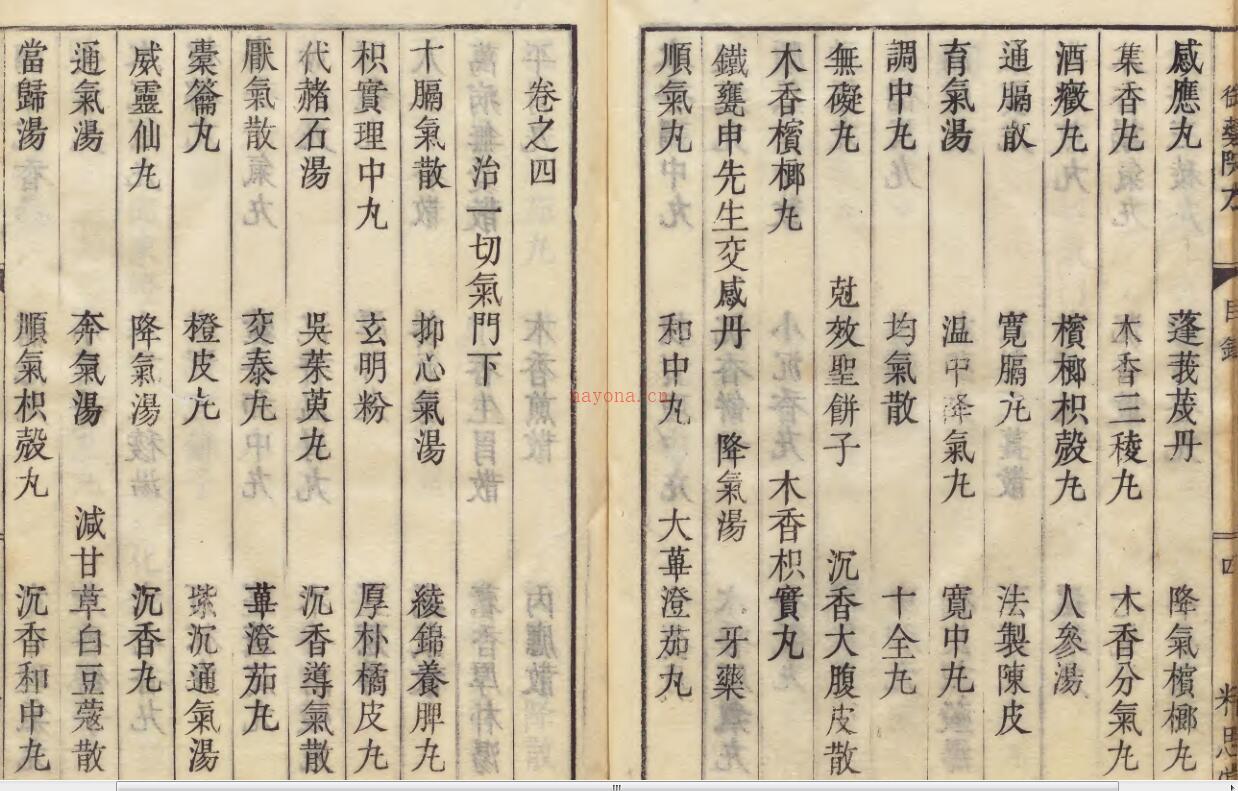 御藥院方
目錄
四
感應丸 蓬莪茂丹 降氣檳榔丸
集香丸 木香三稜丸 木香分氣丸
酒癥丸 檳榔枳殼丸 人參湯
通膈散 寬膈丸 法製陳皮
育氣湯 温中降氣丸 寬中丸
調中丸 均氣散 十全丸
無礙丸 尅效聖餅子 沉香大腹皮散
木香檳榔丸 木香枳實丸
鐵甕申先生交感丹 降氣湯 牙藥
順氣丸 和中丸 大蓽澄茄丸
卷之四
治一切氣門下
十膈氣散 抑心氣湯 綾錦養脾丸
枳實理中丸 玄明粉 厚朴橘皮丸
代赭石湯 吳茱萸丸 沉香導氣散
厭氣散 交泰丸 蓽澄茄丸
橐籥丸 橙皮丸 紫沉通氣湯
威靈仙丸 降氣湯 沉香丸
通氣湯 奔氣湯 減甘草白豆蔻散
當歸湯 順氣枳殼丸 沉香和中丸
nayona.cn